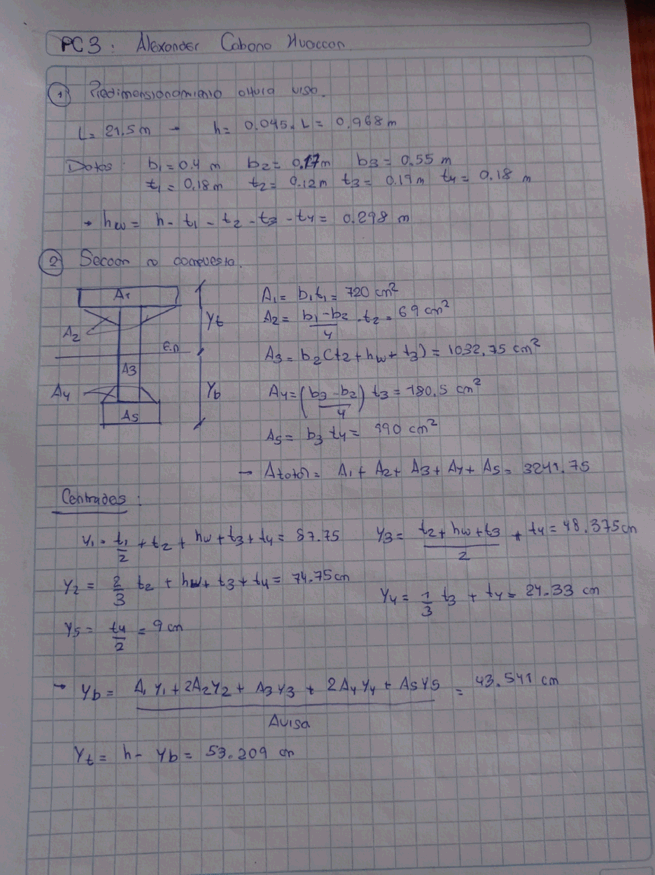 PC3: Alexander Cabana Huaccan
① Predimensionamiento altura viga.
L= 21.5m → h= 0.045.L = 0.968 m
Datos: b₁=0.4 m b₂= 0.17m b₃= 0.55 m
t₁= 0.18m t₂= 0.12m t₃= 0.19m t₄= 0.18 m
→ hw= h- t₁ - t₂ - t₃ - t₄ = 0.298 m
② Seccion no compuesta.
A₁
A₂
A₃
A₄
A₅
Yt
E.n
Yb
A₁= b₁t₁= 720 cm²
A₂= (b₁-b₂)/4 . t₂= 69 cm²
A₃= b₂(t₂+hw+t₃) = 1032.75 cm²
A₄= ((b₃-b₂)/4) t₃= 180.5 cm²
A₅= b₃ t₄= 990 cm²
→ Atotal= A₁ + A₂+ A₃+ A₄+ A₅= 3241.75
Centroides:
Y₁= t₁/2 + t₂ + hw + t₃+ t₄= 87.75
Y₃= (t₂+hw+t₃)/2 + t₄= 48.375cm
Y₂= 2/3 t₂ + hw+ t₃+ t₄= 74.75cm
Y₄= 1/3 t₃ + t₄= 24.33 cm
Y₅= t₄/2 = 9 cm
→ Yb= (A₁Y₁+2A₂Y₂ + A₃Y₃ + 2A₄Y₄ + A₅Y₅)/Aviga = 43.541 cm
Yt= h- Yb= 53.209 cm